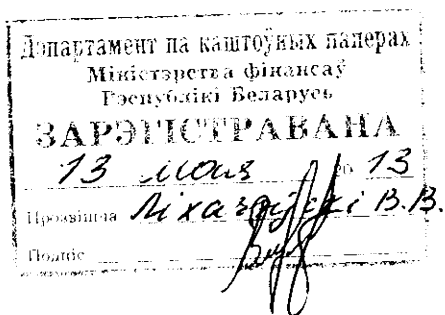 Дэпартамент па каштоўных паперах
Міністэрства фінансаў
Рэспублікі Беларусь
ЗАРЭГІСТРАВАНА
13 мая 20 13
Прозвішча В.В.
Подпіс